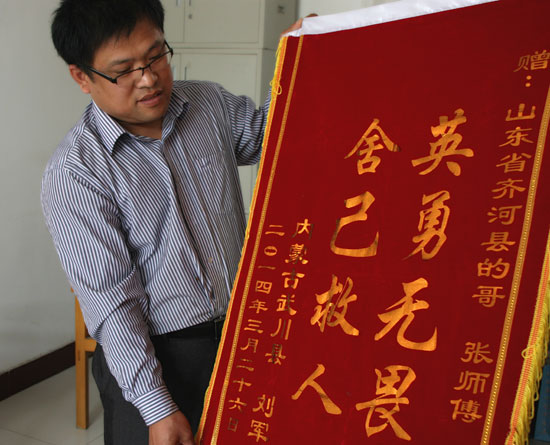 赠：山东省齐河县的哥 张师傅
英勇无畏
舍己救人
内蒙古武川县 刘军
二〇一四年三月二十六日